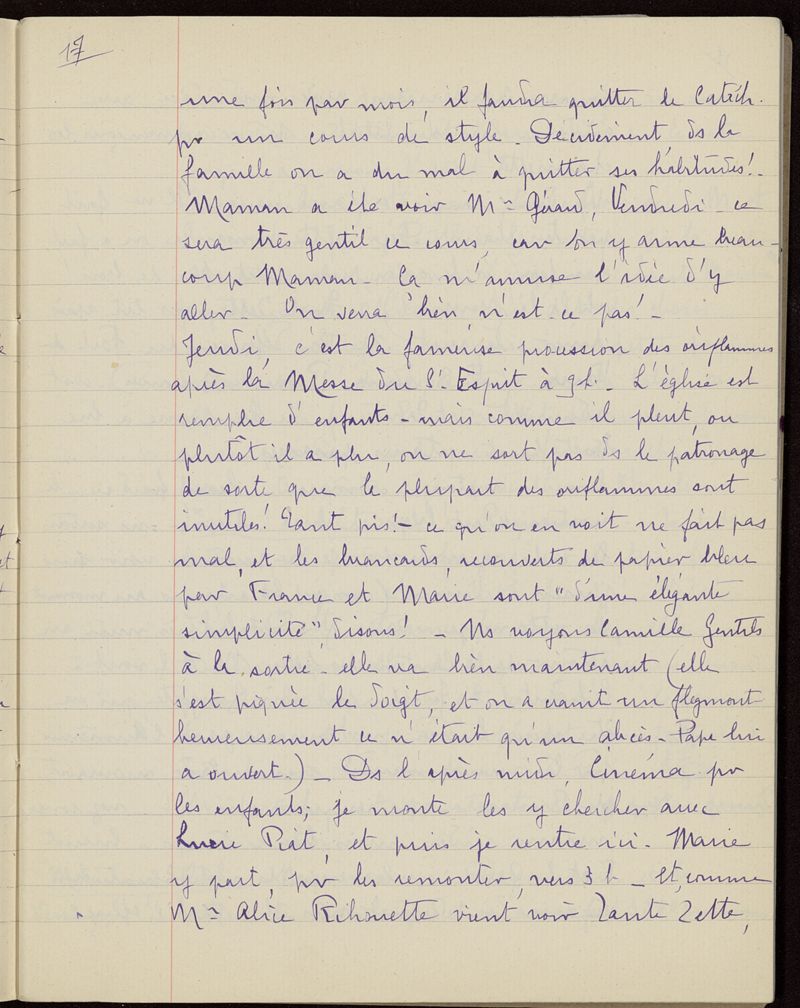 17
une fois par mois, il faudra quitter le Catéch.
pr un cours de style. Décidément ds la
famille on a du mal à quitter ses habitudes! -
Maman a été voir Me Gérard, Vendredi - ce
sera très gentil ce cours, car on y aime beau-
coup Maman - Ca m'amuse l'idée d'y
aller - On verra bien, n'est-ce pas! -
Jeudi, c'est la fameuse procession des oriflammes
après la Messe du St. Esprit à 9h. - L'église est
remplie d'enfants - mais comme il pleut, ou
plutôt il a plu, on ne sort pas ds le patronage
de sorte que le plupart des oriflammes sont
inutiles! Tant pis! - ce qu'on en voit ne fait pas
mal, et les brancards, recouverts de papier bleu
par France et Marie sont "d'une élégante
simplicité", disons! - Ns voyons Camille Gentils
à la sortie - elle va bien maintenant (elle
s'est piquée le doigt, et on a craint un flegmont
heureusement ce n'était qu'un abcès - Papa lui
a ouvert.) - Ds l'après midi, Cinéma pr
les enfants; je monte les y chercher avec
Lucie Piat, et puis je rentre ici - Marie
y part, pr les remonter, vers 3 h - Et, comme
Me Alice Rihouette vient voir Tante Zette,